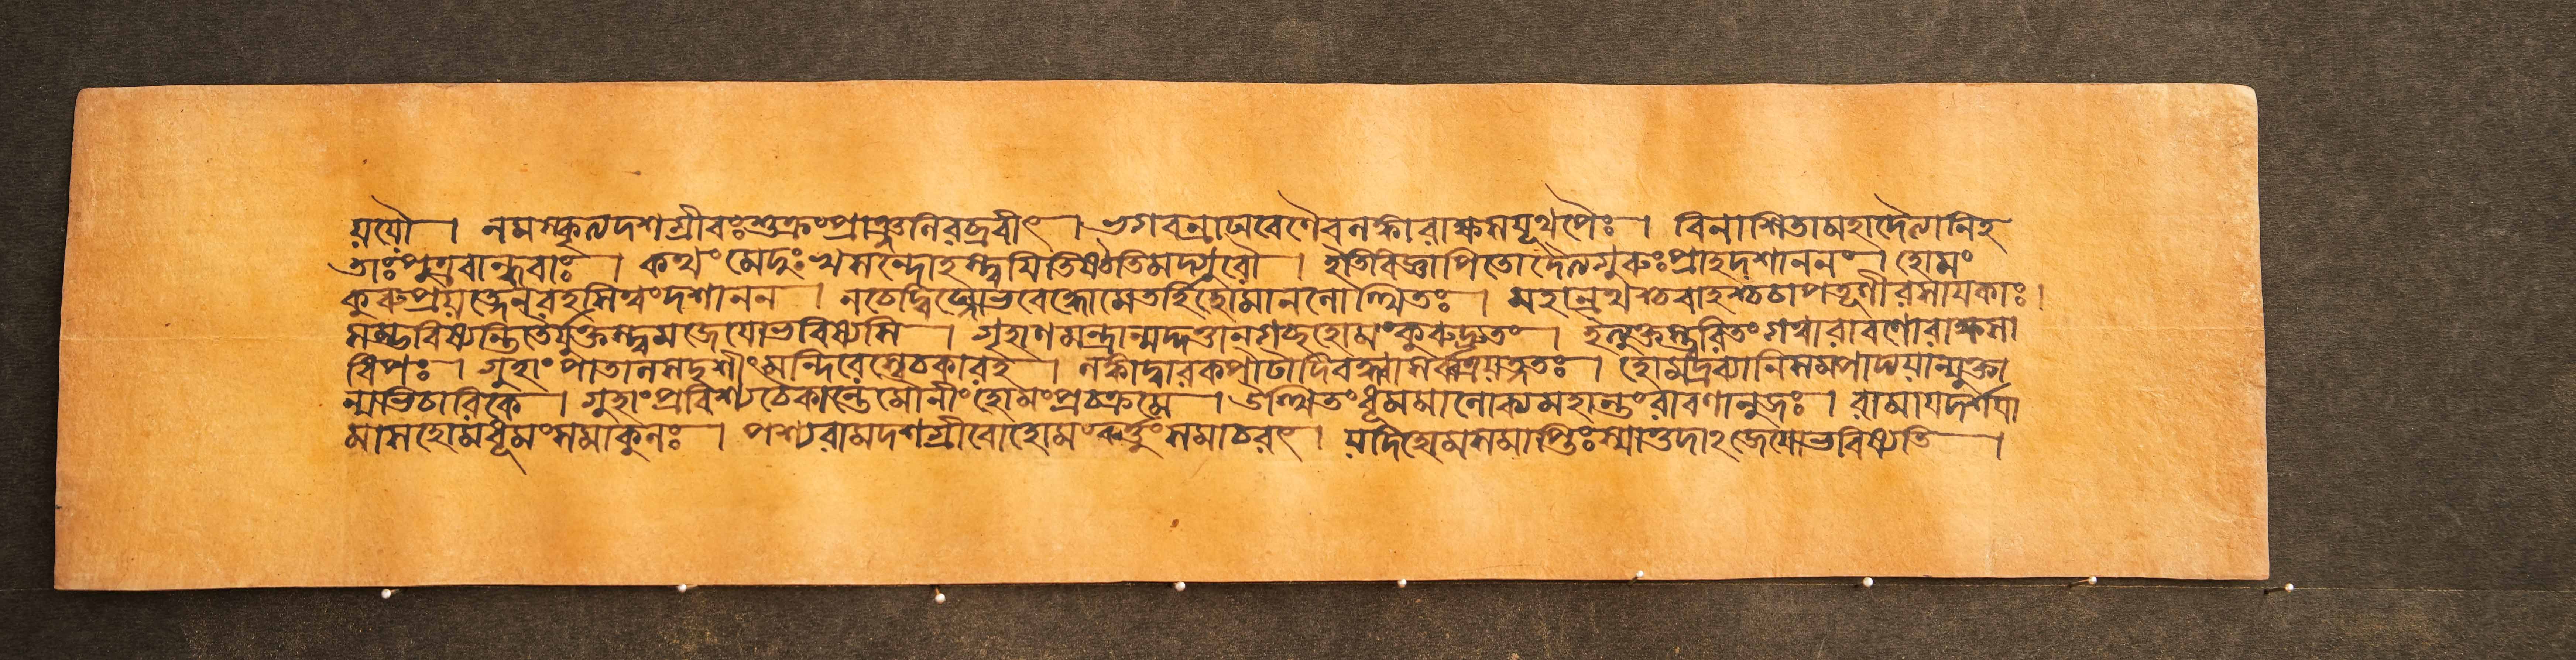 যযৌ । নমস্কৃত্যদশগ্রীবঃশুক্রংপ্রাঞ্জলিরব্রবীৎ । ভগবন্রাঘবেণৈবলঙ্কারাক্ষসযূথপৈঃ । বিনাশিতামহাদৈত্যানিহ
তাঃপুত্রবান্ধবাঃ । কথং মেদুঃখসন্দোহস্ত্বয়িতিষ্ঠতিসদ্গুরৌ । ইতিবিজ্ঞাপিতোদৈত্যগুরুঃপ্রাহদশাননং । হোমং
কুরুপ্রযত্নেনরহসিত্বংদশানন । নচেদ্বিঘ্নোভবেদ্ধোমেতর্হিহোমানলোত্থিতঃ । মহান্রথশ্চবাহশ্চচাপতূণীরসায়কাঃ ।
সম্ভবিষ্যন্তিতৈর্যুক্তস্ত্বমজেয়োভবিষ্যসি । গৃহাণমন্ত্রান্মদ্দত্তান্গচ্ছহোমংকুরুদ্রুতং । ইত্যুক্তস্ত্বরিতংগত্বারাবণোরাক্ষসা
ধিপঃ । গুহাং পাতালসদৃশীংমন্দিরেস্বেচকারহ । লঙ্কাদ্বারকপাটাদিবদ্ধ্বাসর্বত্রযত্নতঃ । হোমদ্রব্যানিসম্পাদ্যযান্যুক্তা
ন্যাভিচারিকে । গুহাংপ্রবিশ্যচৈকান্তেমৌনীহোমংপ্রচক্রমে । উত্থিতংধূমমালোক্যমহান্তংরাবণানুজঃ । রামায়দর্শয়া
মাসহোমধূমংসমাকুলঃ । পশ্যরামদশগ্রীবোহোমংকর্ত্তুংসমাচরৎ । যদিহোমসমাপ্তিঃস্যাত্তদাঽজেয়োভবিষ্যতি ।